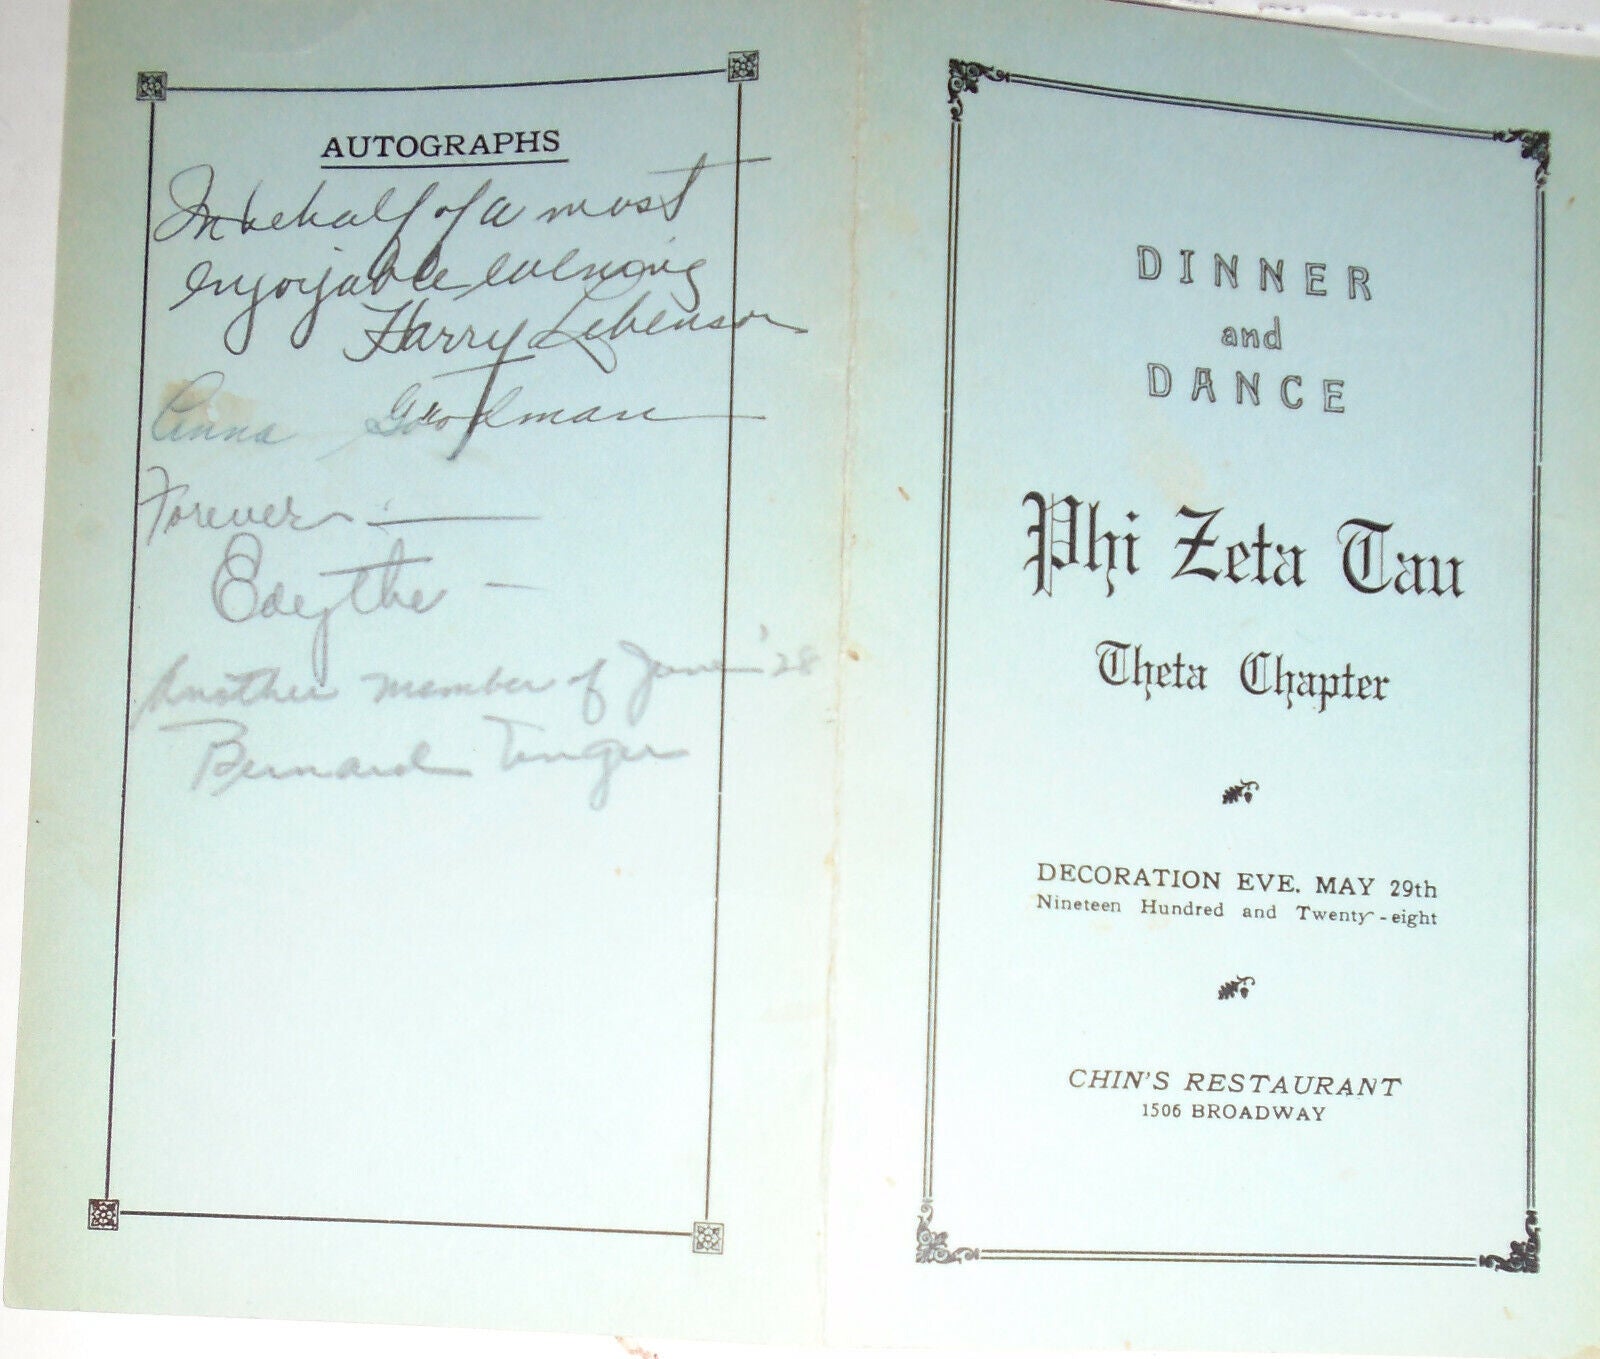 AUTOGRAPHS
In behalf of a most
enjoyable evening
Harry Lebenson
Anna Goodman
Forever —
Edythe —
Another member of June '28
Bernard Unger
DINNER
and
DANCE
Phi Zeta Tau
Theta Chapter
DECORATION EVE. MAY 29th
Nineteen Hundred and Twenty-eight
CHIN'S RESTAURANT
1506 BROADWAY